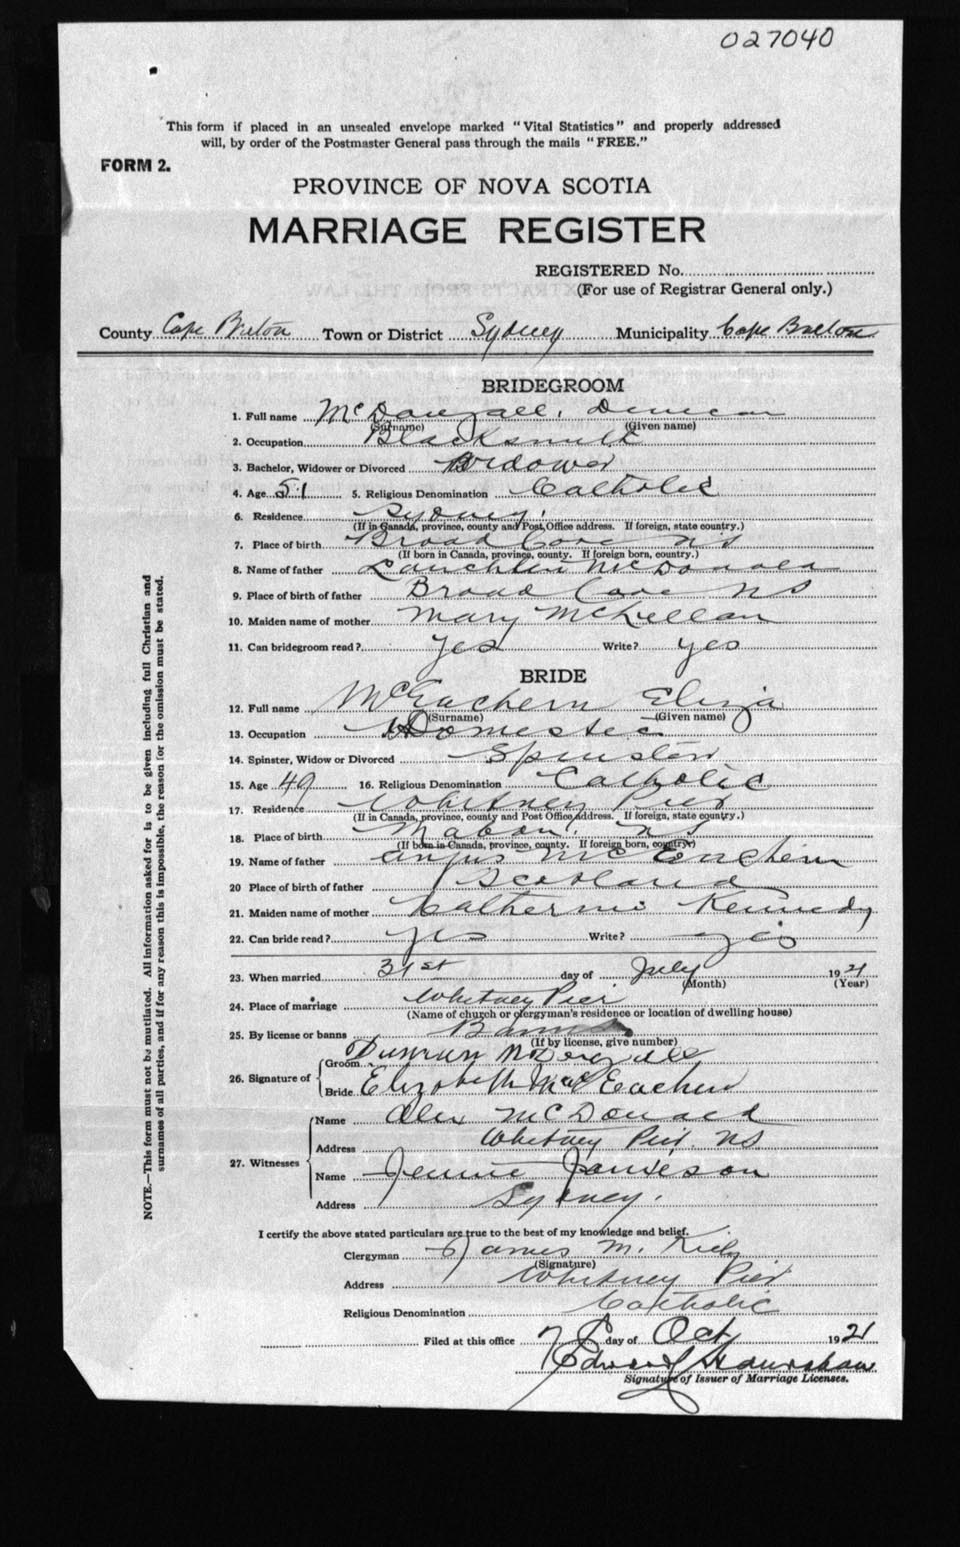 027040
This form if placed in an unsealed envelope marked "Vital Statistics" and properly addressed
will, by order of the Postmaster General pass through the mails "FREE."
FORM 2.
PROVINCE OF NOVA SCOTIA
MARRIAGE REGISTER
REGISTERED No.
(For use of Registrar General only.)
County Cape Breton Town or District Sydney Municipality Cape Breton
BRIDEGROOM
1. Full name McDougall, Duncan
(Surname) (Given name)
2. Occupation Blacksmith
3. Bachelor, Widower or Divorced Widower
4. Age 51 5. Religious Denomination Catholic
6. Residence Sydney.
(If in Canada, province, county and Post Office address. If foreign, state country.)
7. Place of birth Broad Cove NS
(If born in Canada, province, county. If foreign born, country.)
8. Name of father Lauchlin
9. Place of birth of father Broad Cove NS
10. Maiden name of mother Mary McLellan
11. Can bridegroom read? yes Write? yes
BRIDE
12. Full name McEachern Eliza
(Surname) (Given name)
13. Occupation Domestic
14. Spinster, Widow or Divorced Spinster
15. Age 49 16. Religious Denomination Catholic
17. Residence Whitney Pier
(If in Canada, province, county and Post Office address. If foreign, state country.)
18. Place of birth Mabou, NS
(If born in Canada, province, county. If foreign born, country)
19. Name of father Angus McEachern
20 Place of birth of father Scotland
21. Maiden name of mother Catherine Kennedy
22. Can bride read? yes Write? yes
23. When married 31st day of July 1921
(Month) (Year)
24. Place of marriage Whitney Pier
(Name of church or clergyman's residence or location of dwelling house)
25. By license or banns Banns
(If by license, give number)
26. Signature of Groom Duncan
Bride Elizabeth MacEachern
27. Witnesses Name Alex McDonald
Address Whitney Pier NS
Name Jennie Jamieson
Address Sydney.
I certify the above stated particulars are true to the best of my knowledge and belief.
Clergyman James M. Kiely
(Signature)
Address Whitney Pier
Religious Denomination Catholic
Filed at this office 7 day of Oct 1921
Edward
Signature of Issuer of Marriage Licenses.
NOTE.—This form must not be mutilated. All information asked for is to be given including full Christian and
surnames of all parties, and if for any reason this is impossible, the reason for the omission must be stated.